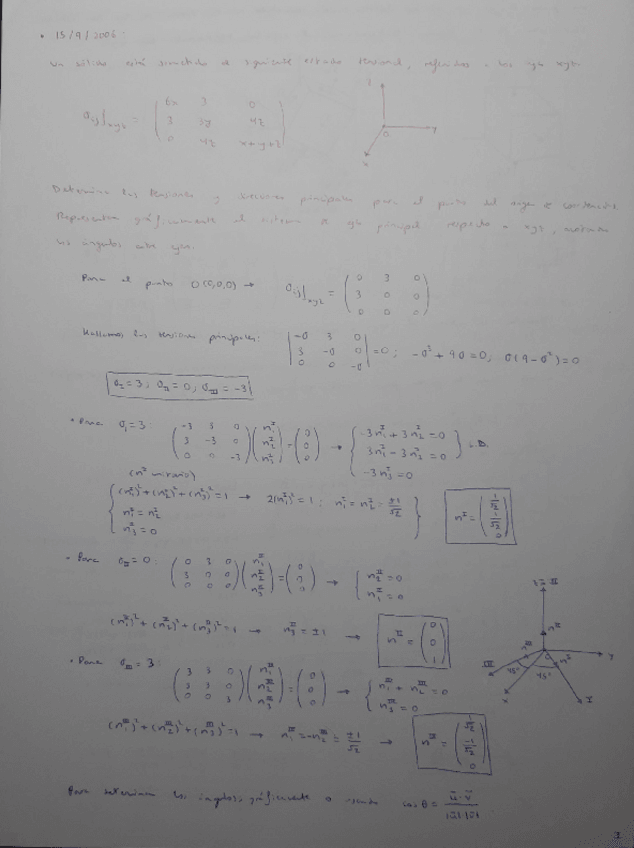 • 15/9/2006:
Un sólido está sometido al siguiente estado tensional, referidos a los ejes xyz:
σij|xyz = ( 6x 3 0
3 5y 4z
0 4z x+y+z )
z
O
y
x
Determina las tensiones y direcciones principales para el punto del origen de coordenadas.
Representa gráficamente el sistema de ejes principal respecto a xyz, los ángulos entre ejes.
Para el punto O(0,0,0) → σij|xyz = ( 0 3 0
3 0 0
0 0 0 )
Hallamos las tensiones principales: | -σ 3 0
3 -σ 0
0 0 -σ | = 0; -σ³ + 9σ = 0; σ(9-σ²) = 0
σI = 3; σII = 0; σIII = -3
• Para σI = 3: ( -3 3 0
3 -3 0
0 0 -3 ) ( n₁ᴵ n₂ᴵ n₃ᴵ ) = ( 0 0 0 ) → { -3n₁ᴵ + 3n₂ᴵ = 0
3n₁ᴵ - 3n₂ᴵ = 0 } i.D.
-3n₃ᴵ = 0
(nᴵ unitario)
{ (n₁ᴵ)² + (n₂ᴵ)² + (n₃ᴵ)² = 1 → 2(n₁ᴵ)² = 1; n₁ᴵ = n₂ᴵ = ±1/√2 }
n₁ᴵ = n₂ᴵ
n₃ᴵ = 0
nᴵ = ( 1/√2 1/√2 0 )
• Para σII = 0: ( 0 3 0
3 0 0
0 0 0 ) ( n₁ᴵᴵ n₂ᴵᴵ n₃ᴵᴵ ) = ( 0 0 0 ) → { n₂ᴵᴵ = 0
n₁ᴵᴵ = 0
(n₁ᴵᴵ)² + (n₂ᴵᴵ)² + (n₃ᴵᴵ)² = 1 → n₃ᴵᴵ = ±1 → nᴵᴵ = ( 0 0 1 )
• Para σIII = 3: ( 3 3 0
3 3 0
0 0 3 ) ( n₁ᴵᴵᴵ n₂ᴵᴵᴵ n₃ᴵᴵᴵ ) = ( 0 0 0 ) → { n₁ᴵᴵᴵ + n₂ᴵᴵᴵ = 0
n₃ᴵᴵᴵ = 0
(n₁ᴵᴵᴵ)² + (n₂ᴵᴵᴵ)² + (n₃ᴵᴵᴵ)² = 1 → n₁ᴵᴵᴵ = -n₂ᴵᴵᴵ = ±1/√2 → nᴵᴵᴵ = ( 1/√2 -1/√2 0 )
z ≡ II
nᴵᴵ
y
III
nᴵᴵᴵ
nᴵ
45°
45°
x
I
Para determinar los ángulos, gráficamente o usando cos θ = ū·v̄ / |ū| |v̄|